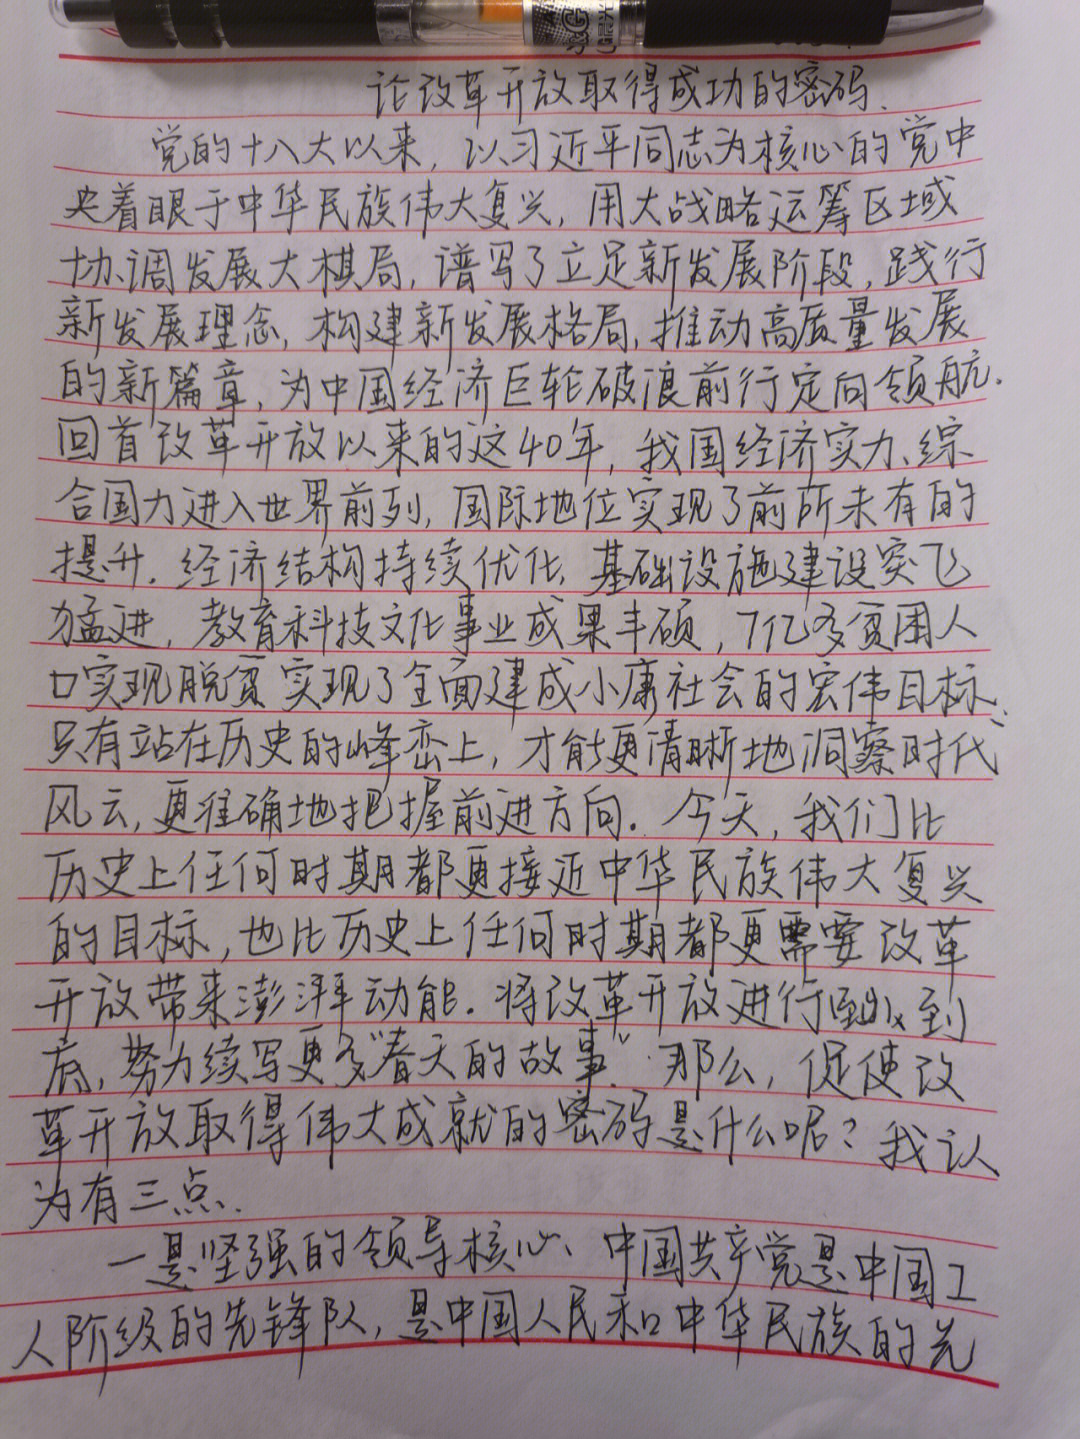 论改革开放取得成功的密码.
党的十八大以来,以习近平同志为核心的党中
央着眼于中华民族伟大复兴,用大战略运筹区域
协调发展大棋局,谱写了立足新发展阶段,践行
新发展理念,构建新发展格局,推动高质量发展
的新篇章,为中国经济巨轮破浪前行定向领航.
回首改革开放以来的这40年,我国经济实力、综
合国力进入世界前列,国际地位实现了前所未有的
提升.经济结构持续优化,基础设施建设突飞
猛进,教育科技文化事业成果丰硕,7亿多贫困人
口实现脱贫,实现了全面建成小康社会的宏伟目标.
只有站在历史的峰峦上,才能更清晰地洞察时代
风云,更准确地把握前进方向.今天,我们比
历史上任何时期都更接近中华民族伟大复兴
的目标,也比历史上任何时期都更需要改革
开放带来澎湃动能.将改革开放进行到
底,努力续写更多“春天的故事”.那么,促使改
革开放取得伟大成就的密码是什么呢?我认
为有三点.
一是坚强的领导核心、中国共产党是中国工
人阶级的先锋队,是中国人民和中华民族的先